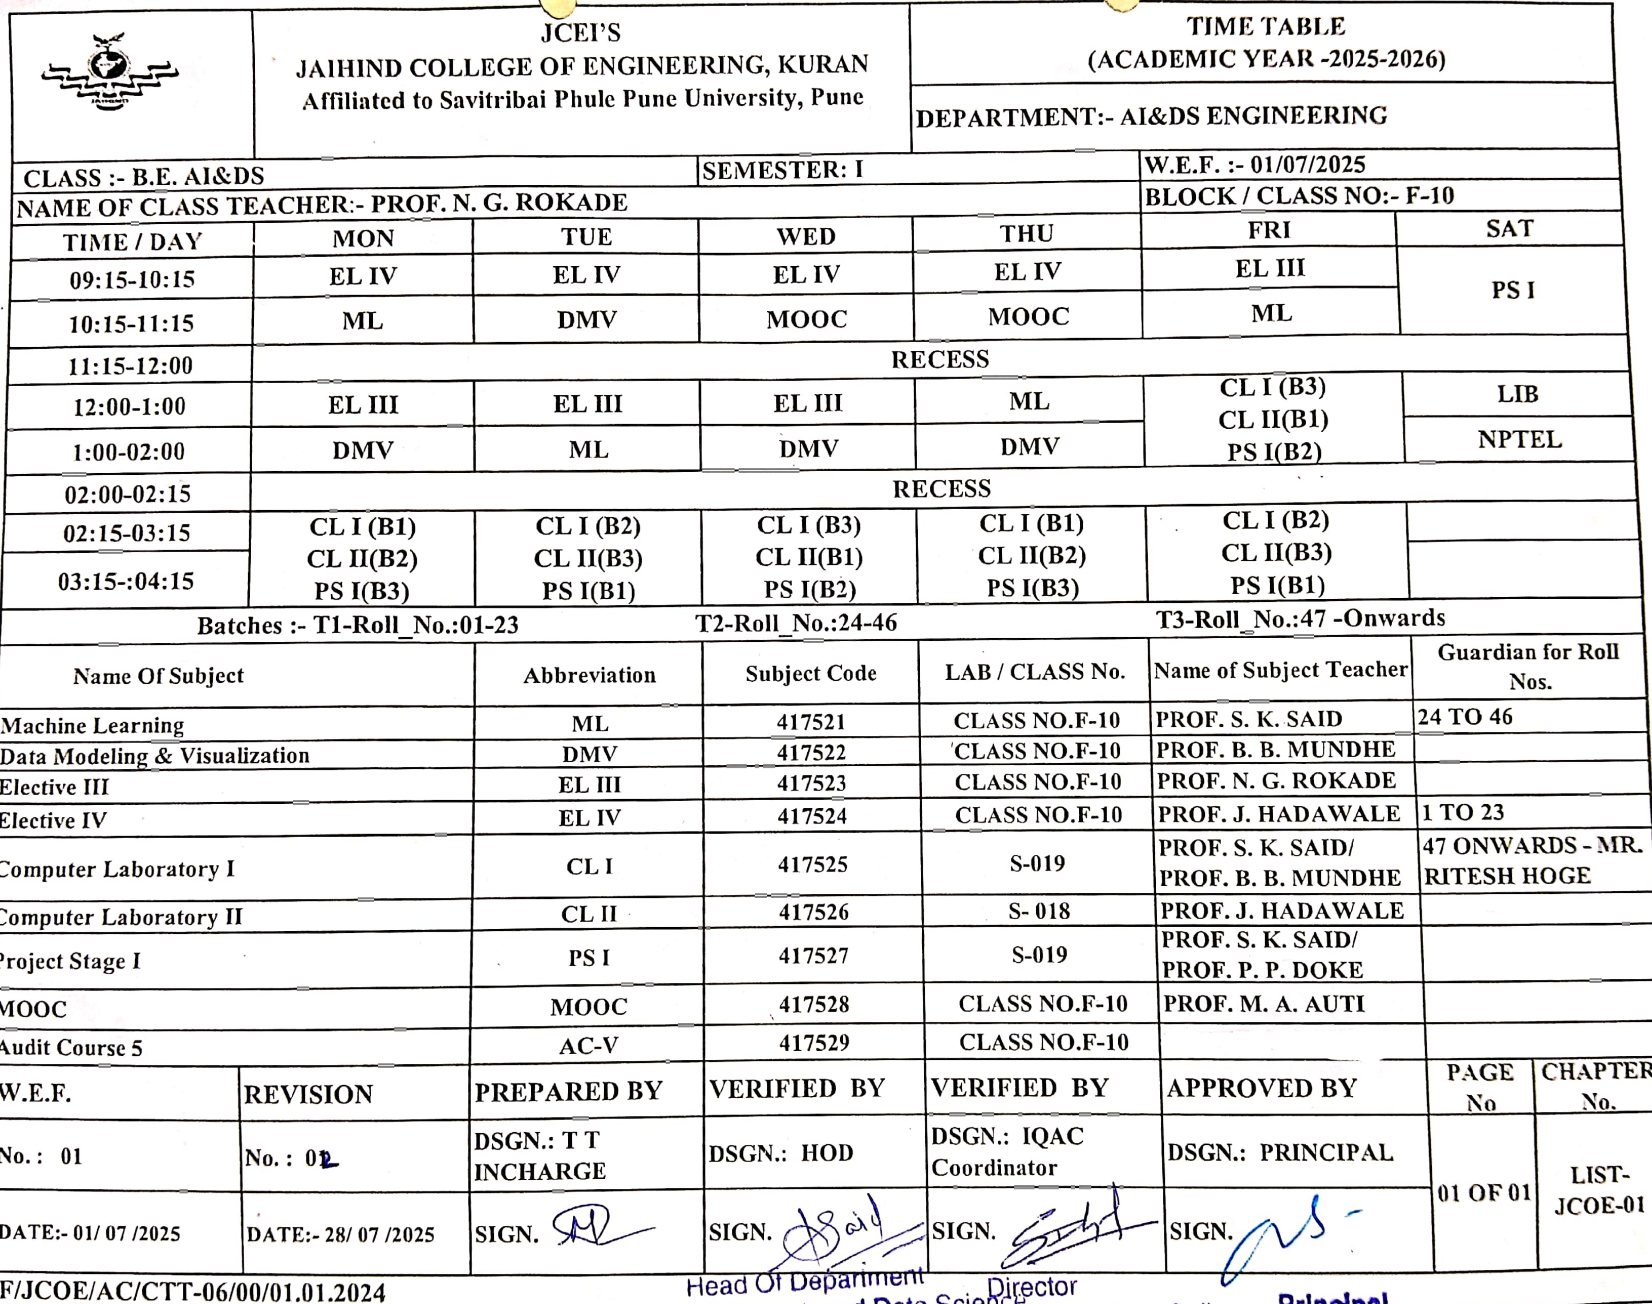 JCEI'S
JAIHIND COLLEGE OF ENGINEERING, KURAN
Affiliated to Savitribai Phule Pune University, Pune
TIME TABLE
(ACADEMIC YEAR -2025-2026)
DEPARTMENT:- AI&DS ENGINEERING
CLASS :- B.E. AI&DS SEMESTER: I W.E.F. :- 01/07/2025
NAME OF CLASS TEACHER:- PROF. N. G. ROKADE BLOCK / CLASS NO:- F-10
TIME / DAY MON TUE WED THU FRI SAT
09:15-10:15 EL IV EL IV EL IV EL IV EL III PS I
10:15-11:15 ML DMV MOOC MOOC ML
11:15-12:00 RECESS
12:00-1:00 EL III EL III EL III ML CL I (B3) LIB
CL II(B1)
1:00-02:00 DMV ML DMV DMV PS I(B2) NPTEL
02:00-02:15 RECESS
02:15-03:15 CL I (B1) CL I (B2) CL I (B3) CL I (B1) CL I (B2)
CL II(B2) CL II(B3) CL II(B1) CL II(B2) CL II(B3)
03:15-:04:15 PS I(B3) PS I(B1) PS I(B2) PS I(B3) PS I(B1)
Batches :- T1-Roll_No.:01-23 T2-Roll_No.:24-46 T3-Roll_No.:47 -Onwards
Name Of Subject Abbreviation Subject Code LAB / CLASS No. Name of Subject Teacher Guardian for Roll
Nos.
Machine Learning ML 417521 CLASS NO.F-10 PROF. S. K. SAID 24 TO 46
Data Modeling & Visualization DMV 417522 CLASS NO.F-10 PROF. B. B. MUNDHE
Elective III EL III 417523 CLASS NO.F-10 PROF. N. G. ROKADE
Elective IV EL IV 417524 CLASS NO.F-10 PROF. J. HADAWALE 1 TO 23
Computer Laboratory I CL I 417525 S-019 PROF. S. K. SAID/ 47 ONWARDS - MR.
PROF. B. B. MUNDHE RITESH HOGE
Computer Laboratory II CL II 417526 S- 018 PROF. J. HADAWALE
Project Stage I PS I 417527 S-019 PROF. S. K. SAID/
PROF. P. P. DOKE
MOOC MOOC 417528 CLASS NO.F-10 PROF. M. A. AUTI
Audit Course 5 AC-V 417529 CLASS NO.F-10
W.E.F. REVISION PREPARED BY VERIFIED BY VERIFIED BY APPROVED BY PAGE No CHAPTER No.
No. : 01 No. : 02 DSGN.: T T INCHARGE DSGN.: HOD DSGN.: IQAC Coordinator DSGN.: PRINCIPAL 01 OF 01 LIST-JCOE-01
DATE:- 01/ 07 /2025 DATE:- 28/ 07 /2025 SIGN. SIGN. SIGN. SIGN.
F/JCOE/AC/CTT-06/00/01.01.2024 Head Of Department Director
Principal